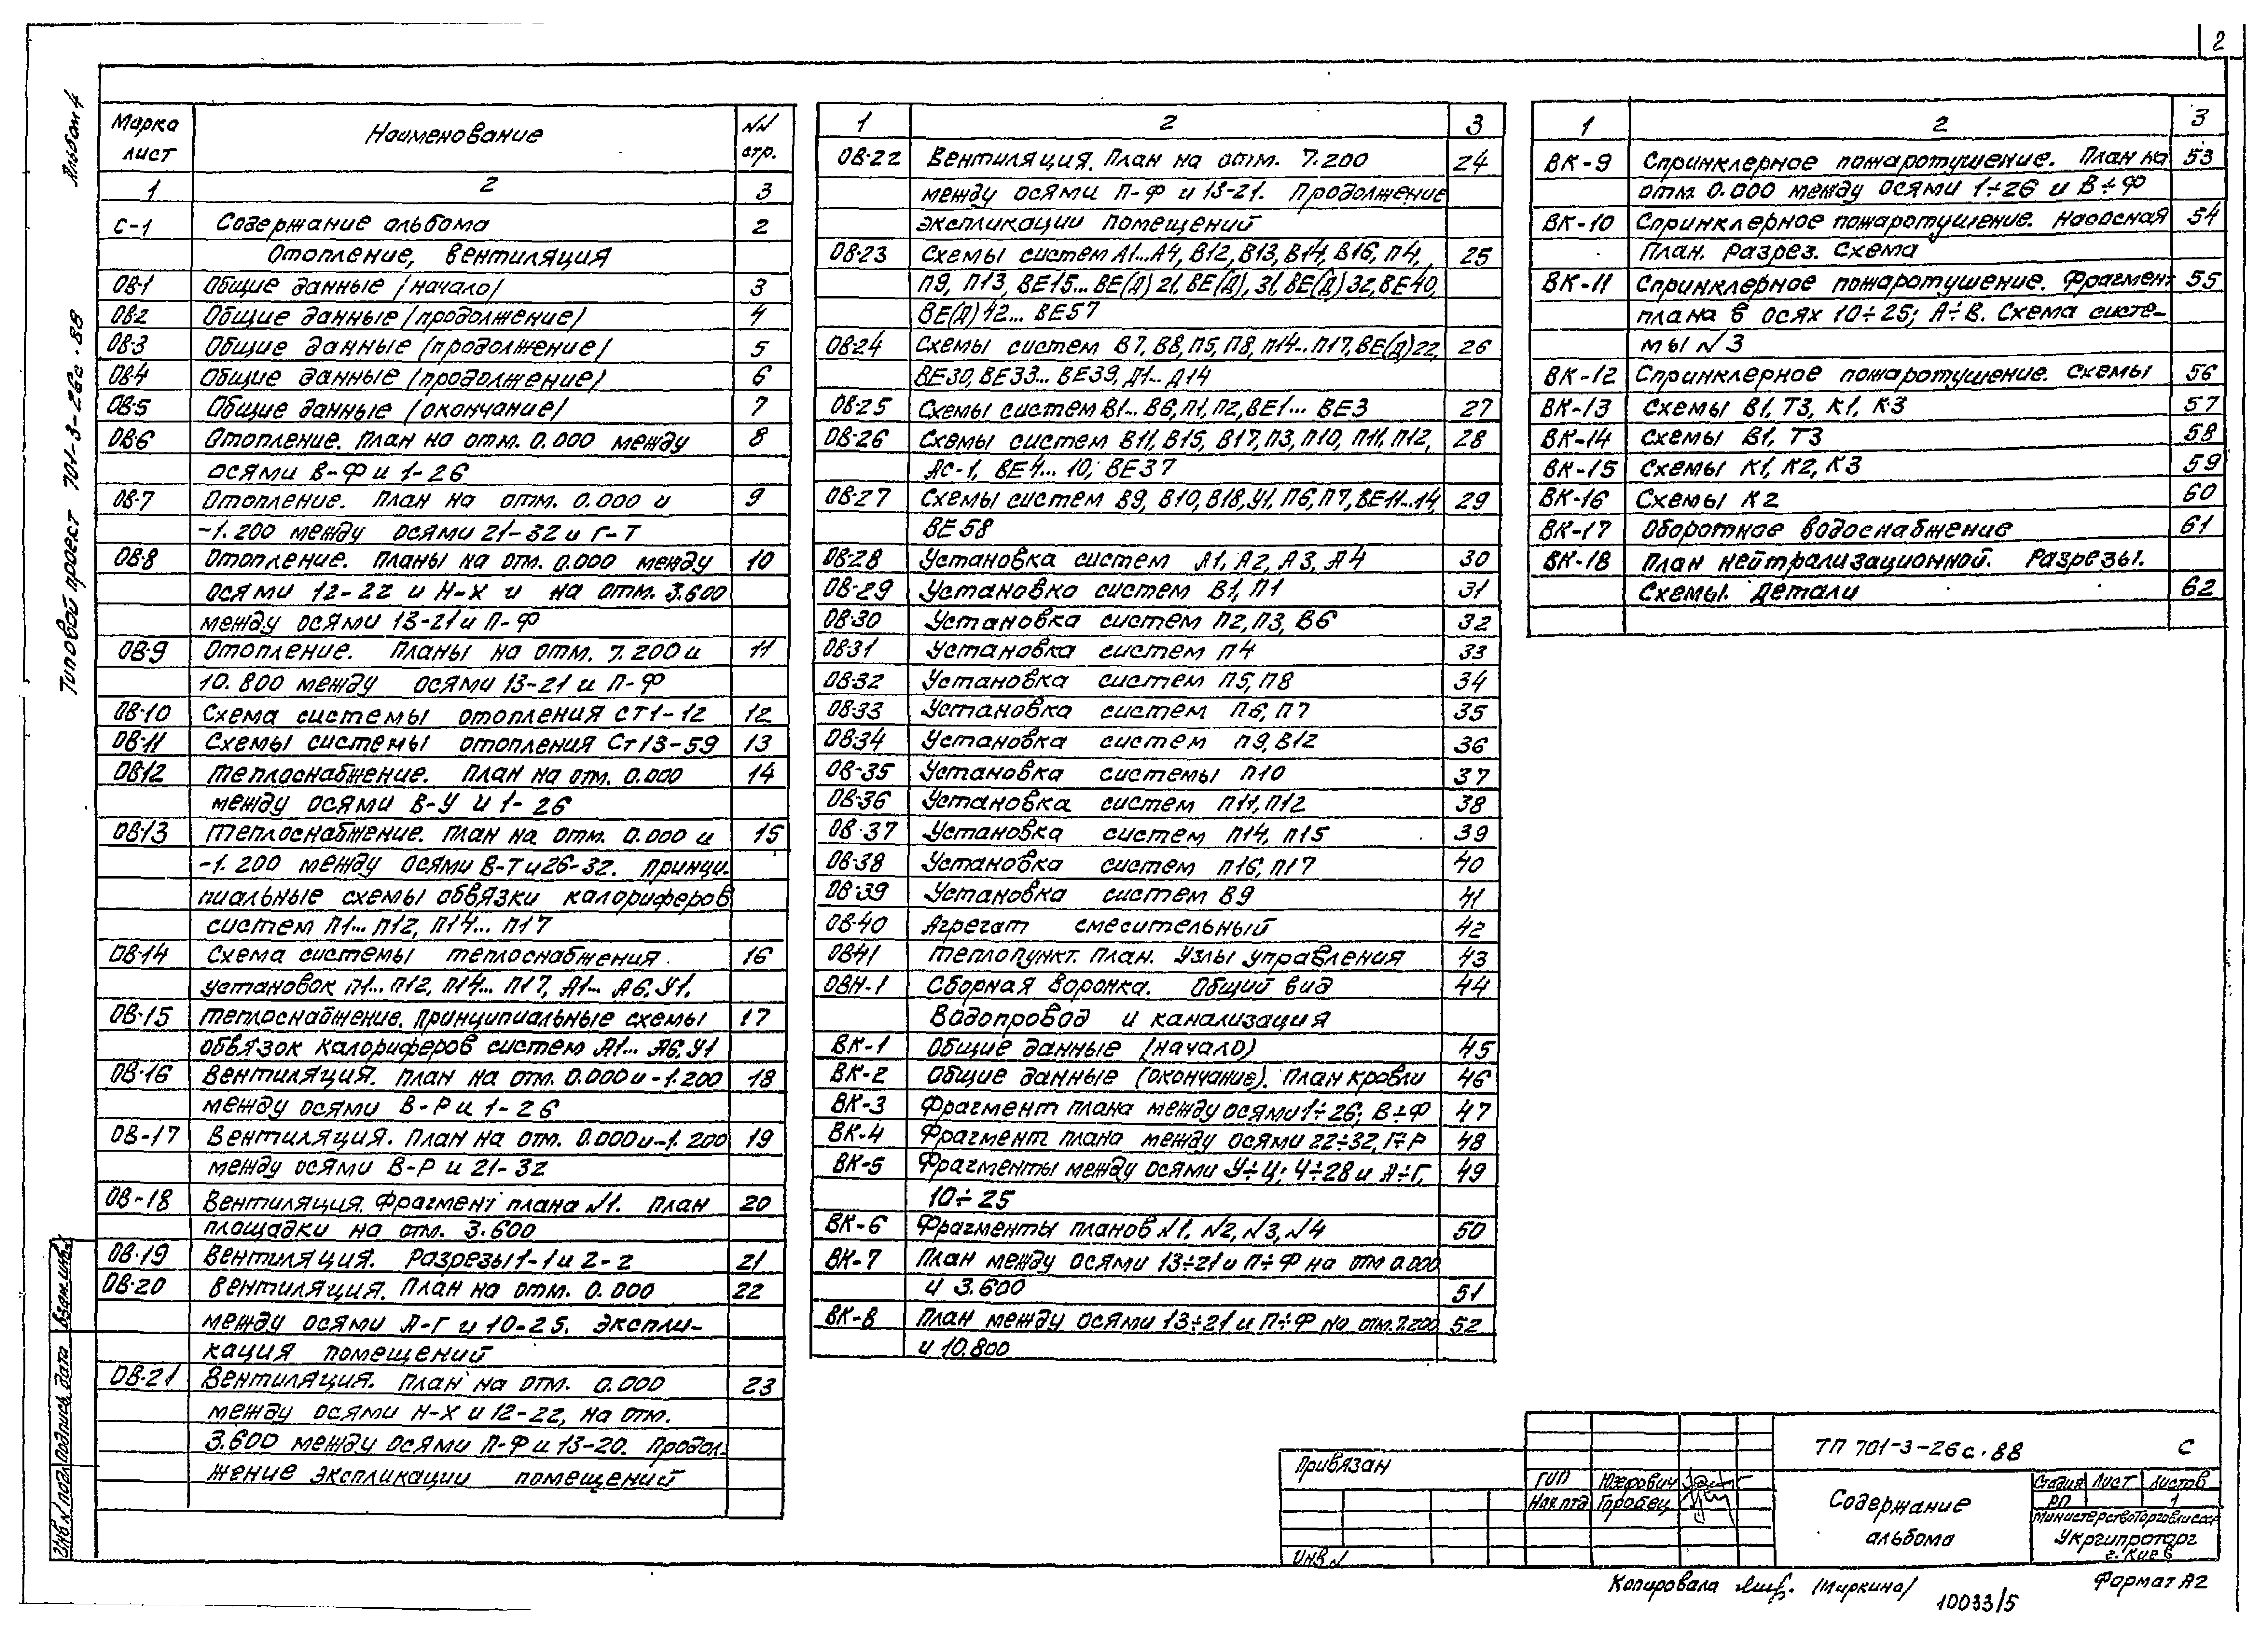 2
Альбом 4
Типовой проект 701-3-26с.88
Марка лист Наименование NN стр.
1 2 3
С-1 Содержание альбома 2
Отопление, вентиляция
ОВ-1 Общие данные (начало) 3
ОВ-2 Общие данные (продолжение) 4
ОВ-3 Общие данные (продолжение) 5
ОВ-4 Общие данные (продолжение) 6
ОВ-5 Общие данные (окончание) 7
ОВ-6 Отопление. План на отм. 0.000 между 8
осями В-Ф и 1-26
ОВ-7 Отопление. План на отм. 0.000 и 9
-1.200 между осями 21-32 и Г-Т
ОВ-8 Отопление. Планы на отм. 0.000 между 10
осями 12-22 и Н-Х и на отм. 3.600
между осями 13-21 и П-Ф
ОВ-9 Отопление. Планы на отм. 7.200 и 11
10.800 между осями 13-21 и П-Ф
ОВ-10 Схема системы отопления Ст 1-12 12
ОВ-11 Схемы системы отопления Ст 13-59 13
ОВ-12 Теплоснабжение. План на отм. 0.000 14
между осями В-У и 1-26
ОВ-13 Теплоснабжение. План на отм. 0.000 и 15
-1.200 между осями В-Т и 26-32. Принци-
пиальные схемы обвязки калориферов
систем П1... П12, П14... П17
ОВ-14 Схема системы теплоснабжения 16
установок П1... П12, П14... П17, А1... А6, У1.
ОВ-15 Теплоснабжение. Принципиальные схемы 17
обвязок калориферов систем А1... А6, У1
ОВ-16 Вентиляция. План на отм. 0.000 и -1.200 18
между осями В-Р и 1-26
ОВ-17 Вентиляция. План на отм. 0.000 и -1.200 19
между осями В-Р и 21-32
ОВ-18 Вентиляция. Фрагмент плана N1. План 20
площадки на отм. 3.600
ОВ-19 Вентиляция. Разрезы 1-1 и 2-2 21
ОВ-20 Вентиляция. План на отм. 0.000 22
между осями А-Г и 10-25. Экспли-
кация помещений
ОВ-21 Вентиляция. План на отм. 0.000 23
между осями Н-Х и 12-22, на отм.
3.600 между осями П-Ф и 13-20. Продол-
жение экспликации помещений
1 2 3
ОВ-22 Вентиляция. План на отм. 7.200 24
между осями П-Ф и 13-21. Продолжение
экспликации помещений
ОВ-23 Схемы систем А1...А4, В12, В13, В14, В16, П4, 25
П9, П13, ВЕ15... ВЕ(Д)21, ВЕ(Д), 31, ВЕ(Д)32, ВЕ40,
ВЕ(Д)42... ВЕ57
ОВ-24 Схемы систем В7, В8, П5, П8, П14... П17, ВЕ(Д)22, 26
ВЕ30, ВЕ33... ВЕ39, Д1... Д14
ОВ-25 Схемы систем В1... В6, П1, П2, ВЕ1... ВЕ3 27
ОВ-26 Схемы систем В11, В15, В17, П3, П10, П11, П12, 28
АС-1, ВЕ4... 10; ВЕ37
ОВ-27 Схемы систем В9, В10, В18, У1, П6, П7, ВЕ11...14, 29
ВЕ58
ОВ-28 Установка систем А1, А2, А3, А4 30
ОВ-29 Установка систем В1, П1 31
ОВ-30 Установка систем П2, П3, В6 32
ОВ-31 Установка систем П4 33
ОВ-32 Установка систем П5, П8 34
ОВ-33 Установка систем П6, П7 35
ОВ-34 Установка систем П9, В12 36
ОВ-35 Установка системы П10 37
ОВ-36 Установка систем П11, П12 38
ОВ-37 Установка систем П14, П15 39
ОВ-38 Установка систем П16, П17 40
ОВ-39 Установка систем В9 41
ОВ-40 Агрегат смесительный 42
ОВ-41 Теплопункт. План. Узлы управления 43
ОВН-1 Сборная воронка. Общий вид 44
Водопровод и канализация
ВК-1 Общие данные (начало) 45
ВК-2 Общие данные (окончание). План кровли 46
ВК-3 Фрагмент плана между осями 1÷26; В÷Ф 47
ВК-4 Фрагмент плана между осями 22÷32, Г÷Р 48
ВК-5 Фрагменты между осями У÷Ц; 4÷28 и А÷Г, 49
10÷25
ВК-6 Фрагменты планов N1, N2, N3, N4 50
ВК-7 План между осями 13÷21 и П÷Ф на отм 0.000
и 3.600 51
ВК-8 План между осями 13÷21 и П÷Ф на отм. 7.200 52
и 10.800
1 2 3
ВК-9 Спринклерное пожаротушение. План на 53
отм. 0.000 между осями 1÷26 и В÷Ф
ВК-10 Спринклерное пожаротушение. Насосная 54
План. Разрез. Схема
ВК-11 Спринклерное пожаротушение. Фрагмент 55
плана в осях 10÷25; А÷В. Схема систе-
мы N3
ВК-12 Спринклерное пожаротушение. Схемы 56
ВК-13 Схемы В1, Т3, К1, К3 57
ВК-14 Схемы В1, Т3 58
ВК-15 Схемы К1, К2, К3 59
ВК-16 Схемы К2 60
ВК-17 Оборотное водоснабжение 61
ВК-18 План нейтрализационной. Разрезы.
Схемы. Детали 62
Инв N подл Подпись Дата Взам. инв N
Привязан
Инв N
ГИП Юхрович
Нач. отд Горобец
ТП 701-3-26с.88 С
Содержание
альбома
Стадия Лист Листов
РП 1
Министерство торговли СССР
Укргипроторг
г. Киев
Копировала (Миркина) Формат А2
10033/5